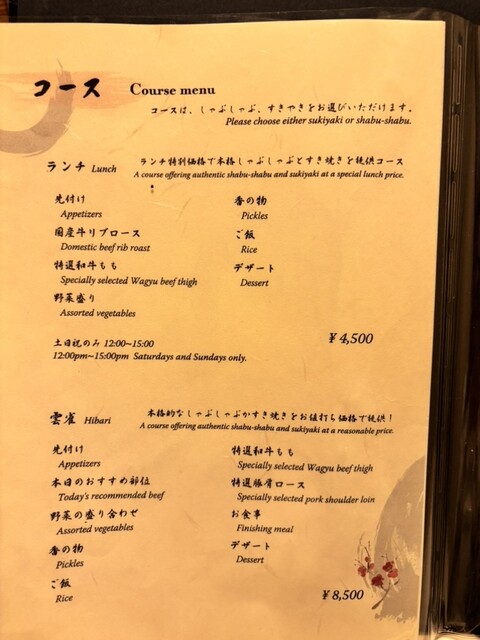 コース Course menu
コースは、しゃぶしゃぶ、すきやきをお選びいただけます。
Please choose either sukiyaki or shabu-shabu.
ランチ Lunch
ランチ特別価格で本格しゃぶしゃぶとすき焼きを提供コース
A course offering authentic shabu-shabu and sukiyaki at a special lunch price.
先付け
Appetizers
国産牛リブロース
Domestic beef rib roast
特選和牛もも
Specially selected Wagyu beef thigh
野菜盛り
Assorted vegetables
香の物
Pickles
ご飯
Rice
デザート
Dessert
土日祝のみ 12:00~15:00
12:00pm~15:00pm Saturdays and Sundays only.
¥4,500
雲雀 Hibari
本格的なしゃぶしゃぶかすき焼きをお値打ち価格で提供!
A course offering authentic shabu-shabu and sukiyaki at a reasonable price.
先付け
Appetizers
本日のおすすめ部位
Today's recommended beef
野菜の盛り合わせ
Assorted vegetables
香の物
Pickles
ご飯
Rice
特選和牛もも
Specially selected Wagyu beef thigh
特選豚肩ロース
Specially selected pork shoulder loin
お食事
Finishing meal
デザート
Dessert
¥8,500